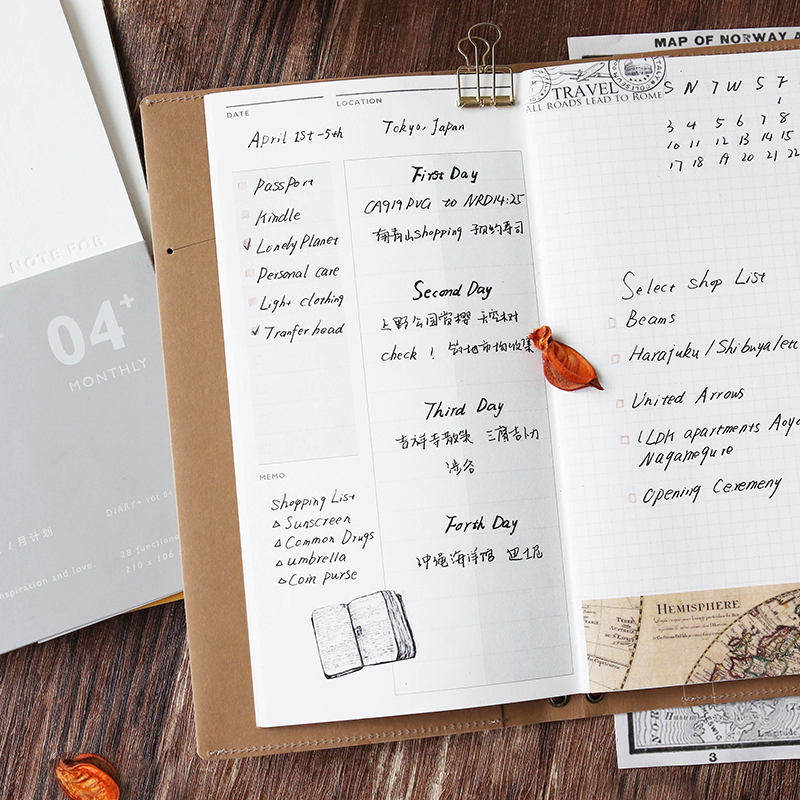 NOTE FOR
04+
MONTHLY
DIARY+ VOL.04
/ 月计划
28 functional
inspiration and love.
210 x 106
DATE
LOCATION
April 1st-5th
Tokyo, Japan
Passport
Kindle
Lonely Planet
Personal care
Light clothing
Tranfer head
MEMO
Shopping List
△ Sunscreen
△ Common Drugs
△ umbrella
△ Coin purse
First Day
CA919 PVG to NRD14:25
南青山shopping 预约寿司
Second Day
上野公园赏樱 天空树
check! 筑地市场收集
Third Day
吉祥寺散策 三鹰吉卜
涉谷
Forth Day
冲绳海洋馆 迪士尼
MAP OF NORWAY A
TRAVEL
ALL ROADS LEAD TO ROME
S N T W S F
1
3 4 5 6 7 8
10 11 12 13 14 15
17 18 19 20 21 22
Select shop List
Beams
Harajuku/Shibuya/etc
United Arrows
(LDK apartments Aoyo
Nagameguro
Opening Ceremeny
HEMISPHERE
Longitude
3